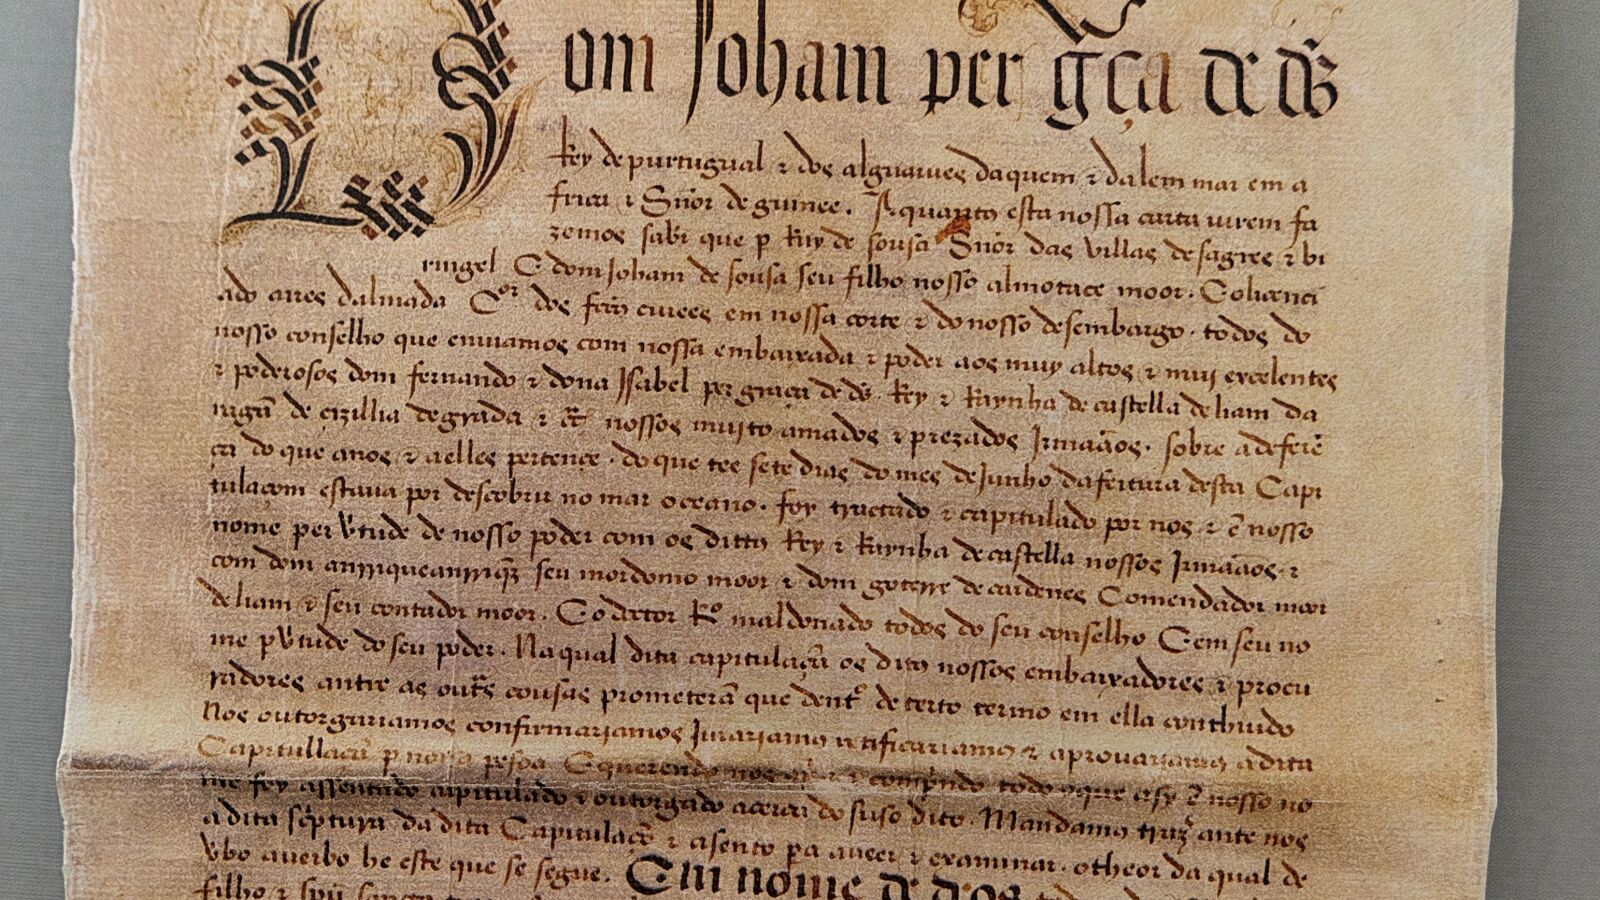 Dom Joham per gça de ds
Rey de purtugual & dos alguarues daquem & dalem mar em a
frica & Snõr de guinee. A quantos esta nossa carta virem fa
zemos sabr que p Ruy de sousa Snõr das villas de sagres & bi
ringel E dom Joham de sousa seu filho nosso almotace moor. Eolicenci
ado aires dalmada Cor dos fectos ciuees em nossa corte & do nosso desembargo. todos do
nosso conselho que enuiamos com nossa embaixada & poder aos muy altos & muy excelentes
& poderosos dom fernando & dona Isabel per graça de ds. Rey & Raynha de castella de liam da
ragã de cizillia de grada & nossos muito amados & prezados Irmaãos. sobre a deferẽ
ça do que anos & a elles pertençe. do que tee sete dias do mes de Junho da feitura desta Capi
tulaçom estaua por descobrir no mar oceano. foy tractado & capitulado por nos & ẽ nosso
nome per vtude de nosso poder com os dittos Rey & Raynha de castella nossos Irmaãos. &
com dom anrrique anrriqz seu mordomo moor & dom goterre de cardenes Comendador moor
de liam & seu contador moor. E o doctor Ro maldonado todos do seu conselho E em seu no
me p vtude do seu poder. Na qual dita capitulaçã os ditos nossos embaixadores & procu
radores antre as outrs cousas prometerã que dentro de certo termo em ella conthiudo
Nos outorgariamos confirmariamos Jurariamos retificariamos & aprouariamos a dita
Capitullaçã p nossa pesoa E querendo nos & comprindo todo o que asy ẽ nosso no
me foy assentado capitulado & outorgado acerca do suso dito. Mandamos trazr ante nos
a dita scriptura da dita Capitulaçõ & asento pa a veer & examinar. o theor da qual de
vbo a verbo he este que se segue. Em nome de deos
filho & spũ